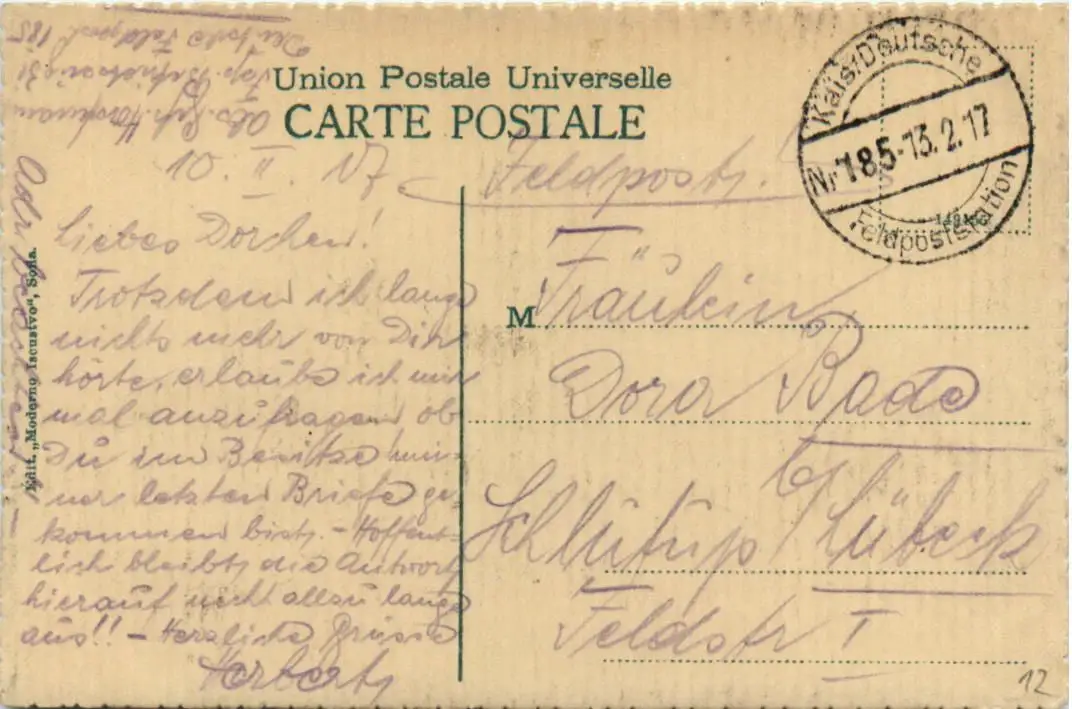 Abs. Gefr. Horstmann
Deutsche Feldpost 185
Union Postale Universelle
CARTE POSTALE
Kais. Deutsche
Nr 185-13.2.17
Feldpoststation
10. II. 17
Feldpost.
Liebes Dorchen!
Trotzdem ich lange
nichts mehr von Dir
hörte, erlaube ich mir
mal anzufragen ob
Du im Besitze mei-
ner letzten Briefe ge-
kommen bist. - Hoffent-
lich bleibt die Antwort
hierauf nicht allzu lange
aus!! - Herzliche Grüsse
Herbert
M
Fräulein
Dora Bade
Schlutup b/ Lübeck
Feldstr I
Edit. „Moderno Iscustvo", Sofia.
12